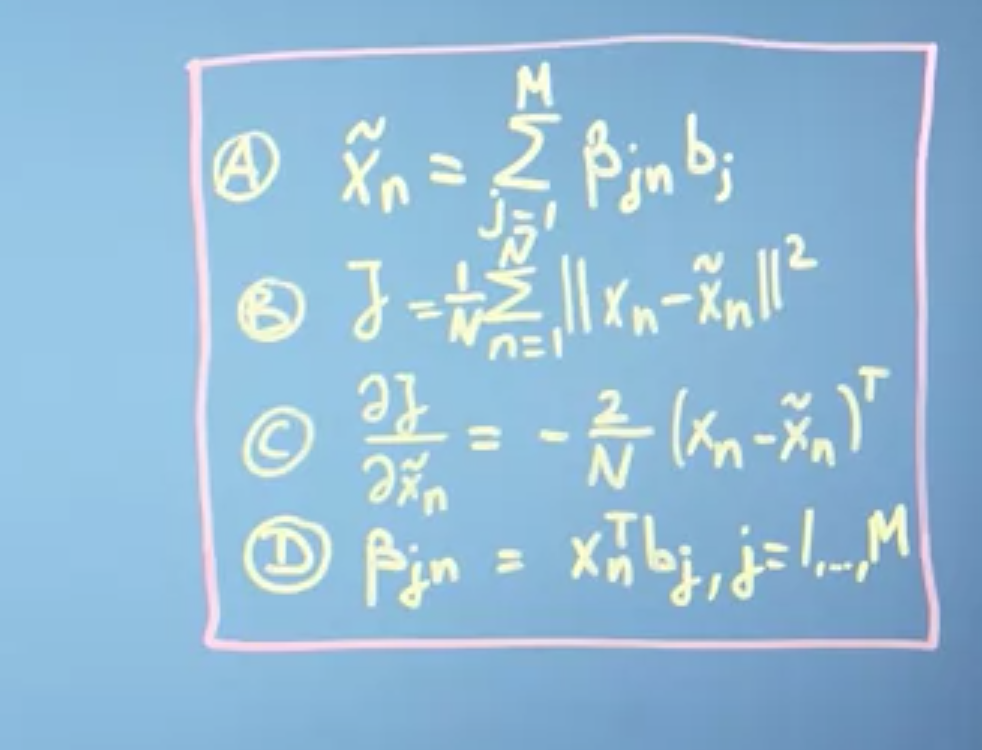 Ⓐ x̃ₙ = Σ_{j=1}^{M} βⱼₙ bⱼ
Ⓑ J = 1/N Σ_{n=1}^{N} ||xₙ - x̃ₙ||²
Ⓒ ∂J/∂x̃ₙ = - 2/N (xₙ - x̃ₙ)ᵀ
Ⓓ βⱼₙ = xₙᵀ bⱼ, j=1,...,M